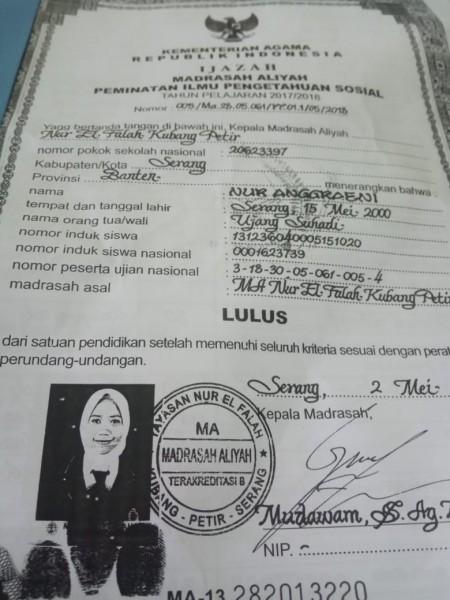 KEMENTERIAN AGAMA
REPUBLIK INDONESIA
IJAZAH
MADRASAH ALIYAH
PEMINATAN ILMU PENGETAHUAN SOSIAL
TAHUN PELAJARAN 2017/2018
Nomor : 005/Ma.28.05.061/PP.01.1/05/2018
Yang bertanda tangan di bawah ini, Kepala Madrasah Aliyah
Nur El Falah Kubang Petir
nomor pokok sekolah nasional : 20623397
Kabupaten/Kota Serang
Provinsi Banten menerangkan bahwa :
nama : NUR ANGGRAENI
tempat dan tanggal lahir : Serang, 15 Mei 2000
nama orang tua/wali : Ujang Suhadi
nomor induk siswa : 131236040005151020
nomor induk siswa nasional : 0001623739
nomor peserta ujian nasional : 3-18-30-05-061-005-4
madrasah asal : MA Nur El Falah Kubang Petir
LULUS
dari satuan pendidikan setelah memenuhi seluruh kriteria sesuai dengan
perundang-undangan.
Serang, 2 Mei
Kepala Madrasah,
YAYASAN NUR EL FALAH
MA
MADRASAH ALIYAH
TERAKREDITASI B
KUBANG - PETIR - SERANG
Mudawam, S. Ag.
NIP. -
MA-13 282013220